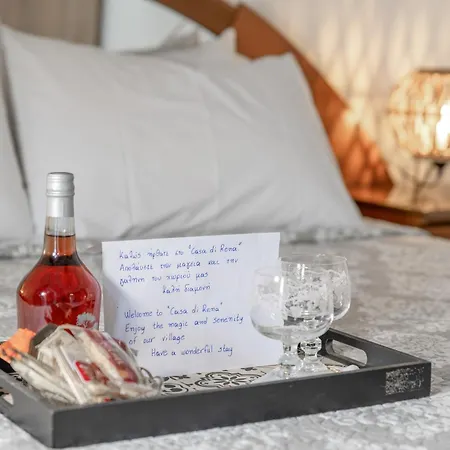 Καλώς ήρθατε στο "Casa di Roma"
Απολαύστε την μαγεία και την
γαλήνη του χωριού μας
Καλή διαμονή
Welcome to "Casa di Roma"
Enjoy the magic and serenity
of our village
Have a wonderful stay